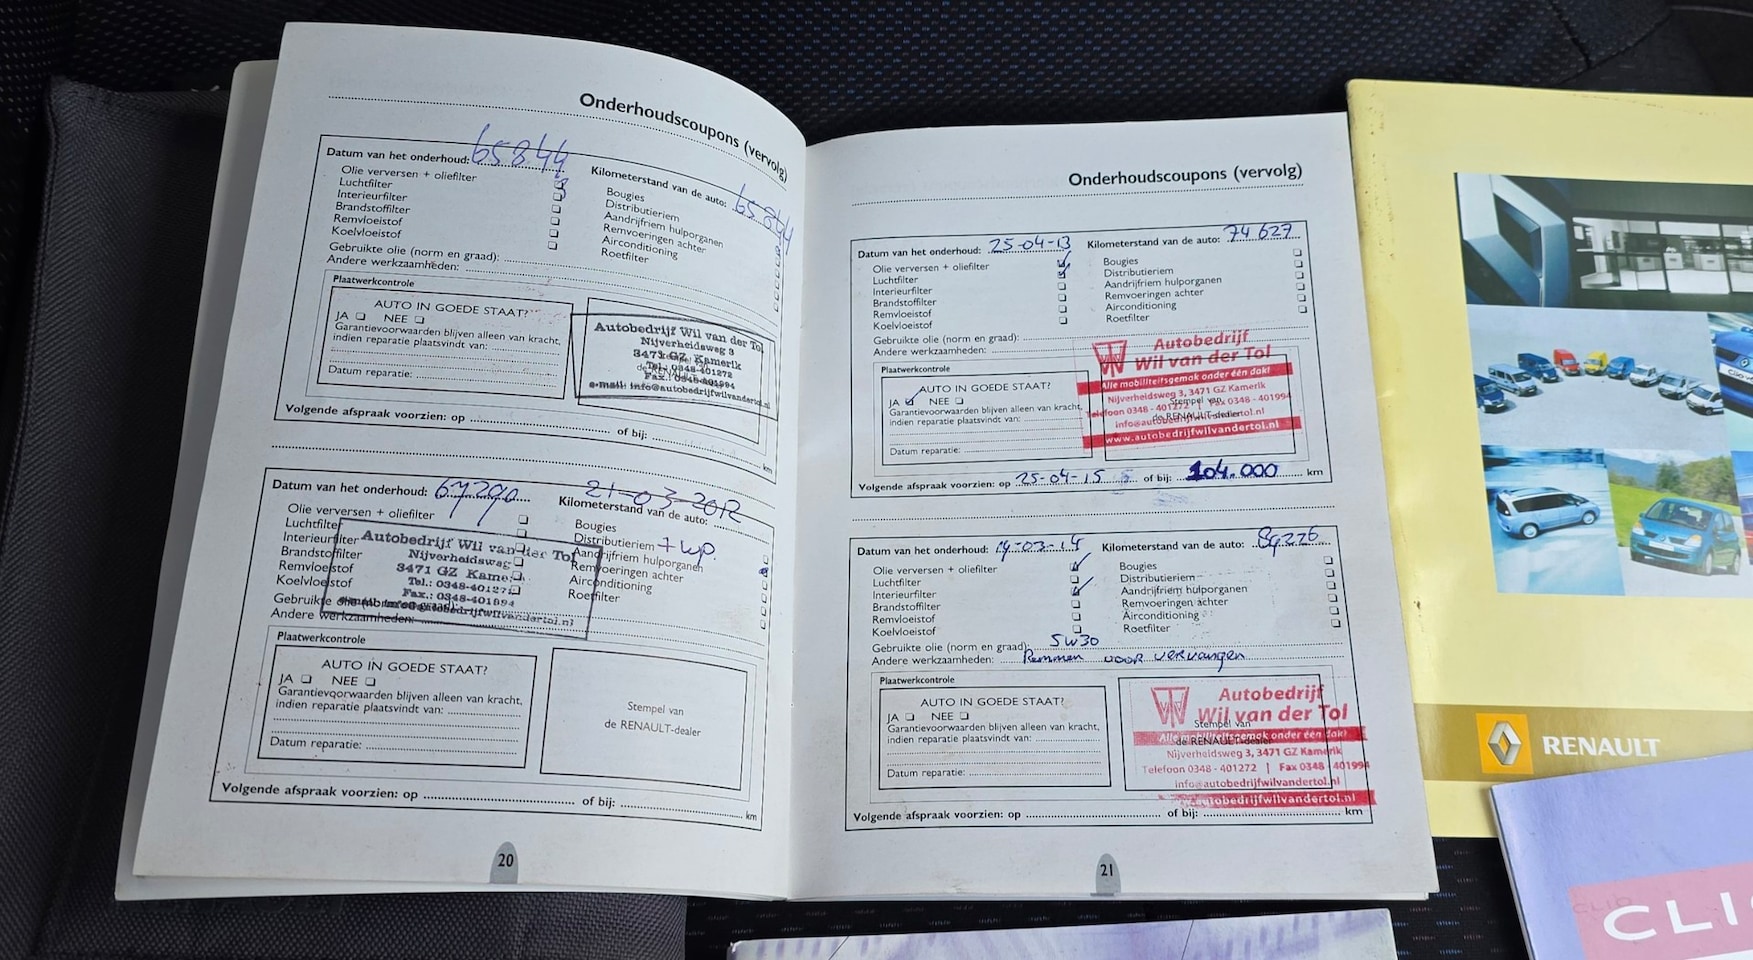 Onderhoudscoupons (vervolg)
Datum van het onderhoud: 65844 Kilometerstand van de auto: 65844
Olie verversen + oliefilter
Luchtfilter
Interieurfilter
Brandstoffilter
Remvloeistof
Koelvloeistof
Bougies
Distributieriem
Aandrijfriem hulporganen
Remvoeringen achter
Airconditioning
Roetfilter
Gebruikte olie (norm en graad):
Andere werkzaamheden:
Plaatwerkcontrole
AUTO IN GOEDE STAAT?
JA NEE
Garantievoorwaarden blijven alleen van kracht,
indien reparatie plaatsvindt van:
Datum reparatie:
Autobedrijf Wil van der Tol
Nijverheidsweg 3
3471 GZ Kamerik
Tel.: 0348-401272
Fax.: 0348-401994
e-mail: info@autobedrijfwilvandertol.nl
Volgende afspraak voorzien: op of bij: km
Datum van het onderhoud: 67290 Kilometerstand van de auto: 21-03-2012
Olie verversen + oliefilter
Luchtfilter
Interieurfilter
Brandstoffilter
Remvloeistof
Koelvloeistof
Bougies
Distributieriem + wp.
Aandrijfriem hulporganen
Remvoeringen achter
Airconditioning
Roetfilter
Autobedrijf Wil van der Tol
Nijverheidsweg
3471 GZ Kamerik
Tel.: 0348-401272
Fax.: 0348-401994
e-mail: info@autobedrijfwilvandertol.nl
Gebruikte olie (norm en graad):
Andere werkzaamheden:
Plaatwerkcontrole
AUTO IN GOEDE STAAT?
JA NEE
Garantievoorwaarden blijven alleen van kracht,
indien reparatie plaatsvindt van:
Datum reparatie:
Stempel van
de RENAULT-dealer
Volgende afspraak voorzien: op of bij: km
20
Onderhoudscoupons (vervolg)
Datum van het onderhoud: 25-04-13 Kilometerstand van de auto: 74627
Olie verversen + oliefilter
Luchtfilter
Interieurfilter
Brandstoffilter
Remvloeistof
Koelvloeistof
Bougies
Distributieriem
Aandrijfriem hulporganen
Remvoeringen achter
Airconditioning
Roetfilter
Gebruikte olie (norm en graad):
Andere werkzaamheden:
Plaatwerkcontrole
AUTO IN GOEDE STAAT?
JA NEE
Garantievoorwaarden blijven alleen van kracht,
indien reparatie plaatsvindt van:
Datum reparatie:
Autobedrijf
Wil van der Tol
Alle mobiliteitsgemak onder één dak!
Nijverheidsweg 3, 3471 GZ Kamerik
Telefoon 0348 - 401272 | Fax 0348 - 401994
Stempel van
de RENAULT-dealer
info@autobedrijfwilvandertol.nl
www.autobedrijfwilvandertol.nl
Volgende afspraak voorzien: op 25-04-15 of bij: 104.000 km
Datum van het onderhoud: 14-03-14 Kilometerstand van de auto: 89226
Olie verversen + oliefilter
Luchtfilter
Interieurfilter
Brandstoffilter
Remvloeistof
Koelvloeistof
Bougies
Distributieriem
Aandrijfriem hulporganen
Remvoeringen achter
Airconditioning
Roetfilter
Gebruikte olie (norm en graad) 5W30
Andere werkzaamheden: Remmen voor vervangen
Plaatwerkcontrole
AUTO IN GOEDE STAAT?
JA NEE
Garantievoorwaarden blijven alleen van kracht,
indien reparatie plaatsvindt van:
Datum reparatie:
Autobedrijf
Wil van der Tol
Stempel van
Alle mobiliteitsgemak onder één dak!
de RENAULT-dealer
Nijverheidsweg 3, 3471 GZ Kamerik
Telefoon 0348 - 401272 | Fax 0348 - 401994
info@autobedrijfwilvandertol.nl
www.autobedrijfwilvandertol.nl
Volgende afspraak voorzien: op of bij: km
21
RENAULT
CLIO